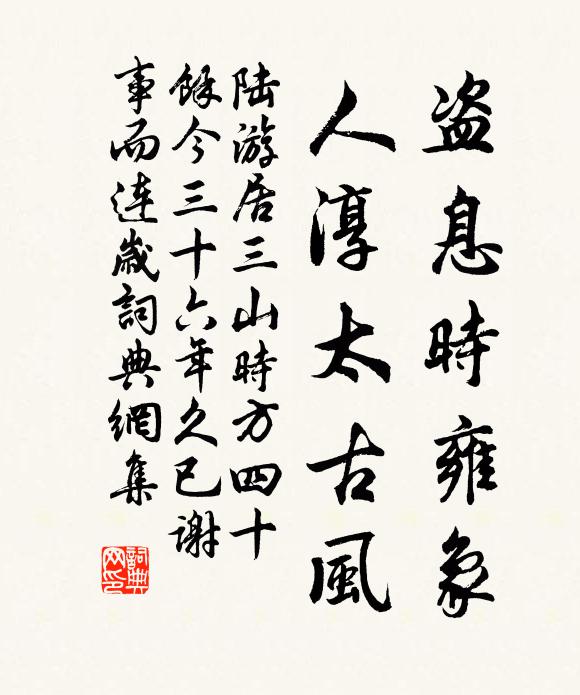 盗息時雍象
人淳太古風
陆游居三山時方四十
餘今三十六年久已谢
事而连歲詞典網集
詞典网印